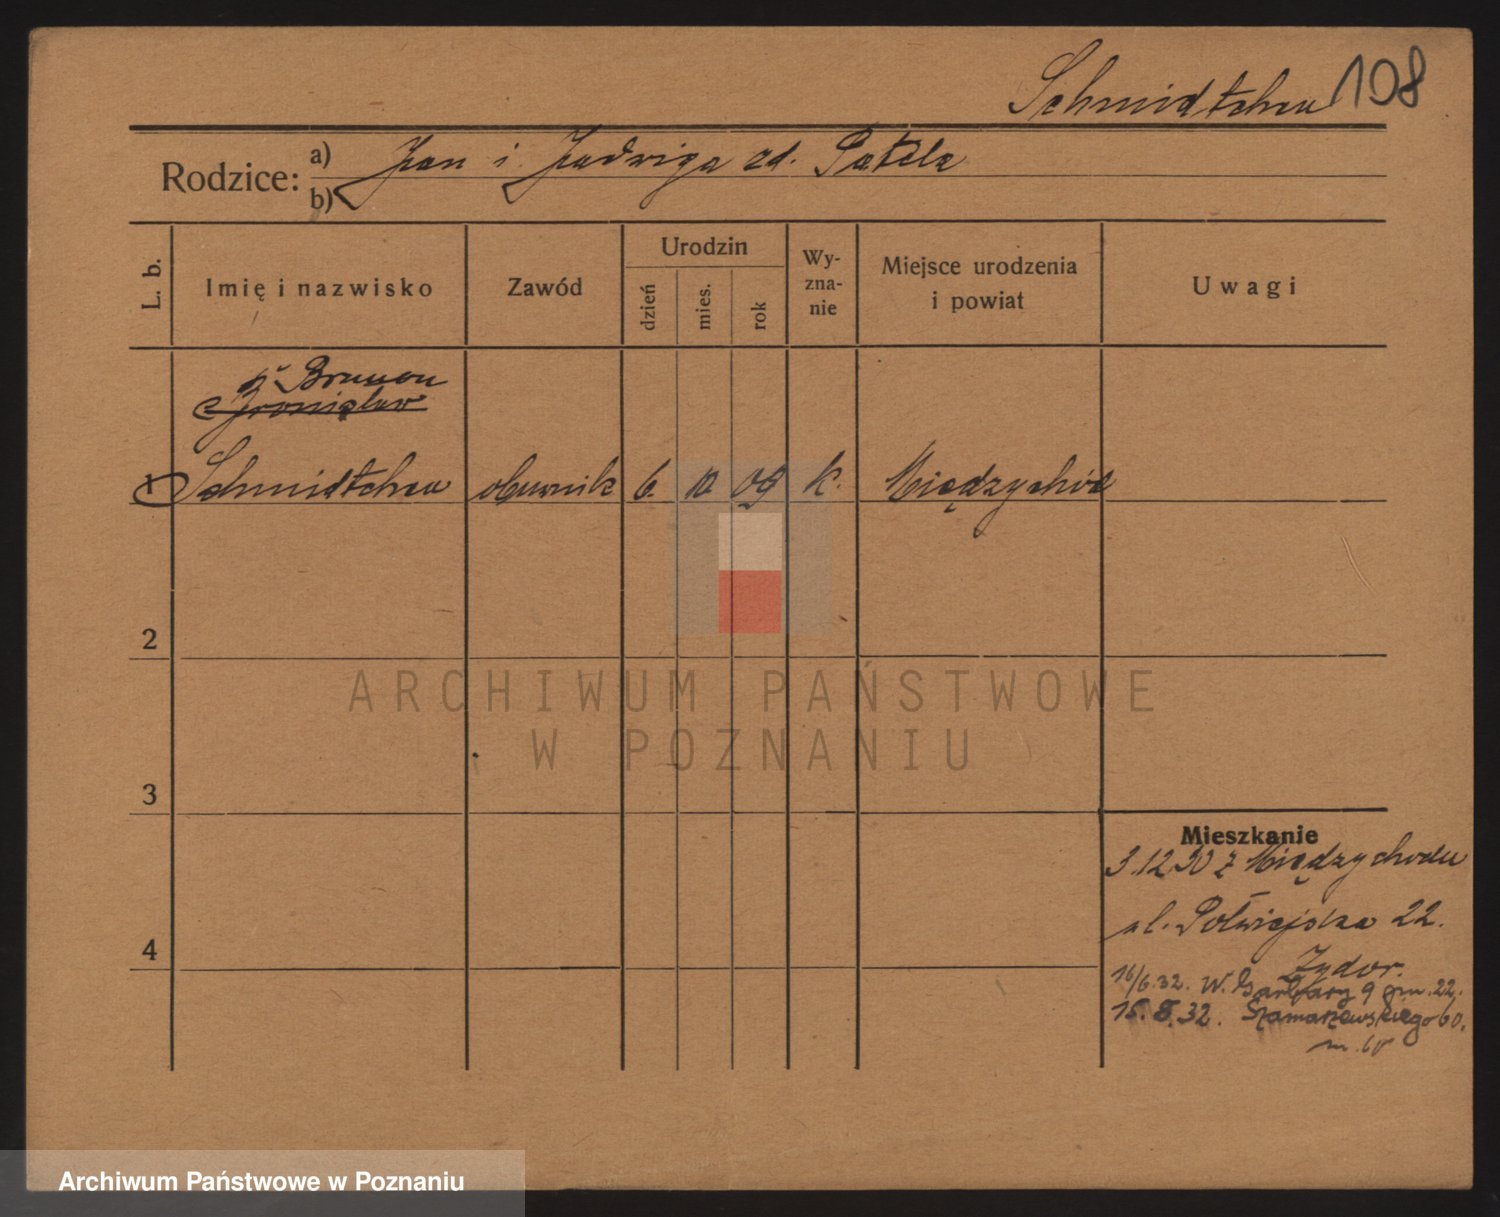 Schmidtchen 108
Rodzice: a) Jan i Jadwiga zd.
b)
L. b.
Imię i nazwisko
Zawód
Urodzin
dzień
mies.
rok
Wy-
zna-
nie
Miejsce urodzenia
i powiat
Uwagi
Brunon
Bronisław
1 Schmidtchen obuwnik 6. 10. 09 k. Międzychód
2
3
4
Mieszkanie
3.12.30 z Międzychodu
ul. Półwiejska 22.
Zydor.
16/6.32. W. Garbary 9 m. 22.
15.8.32. Szamarzewskiego 60.
m. 60
ARCHIWUM PAŃSTWOWE
W POZNANIU
Archiwum Państwowe w Poznaniu